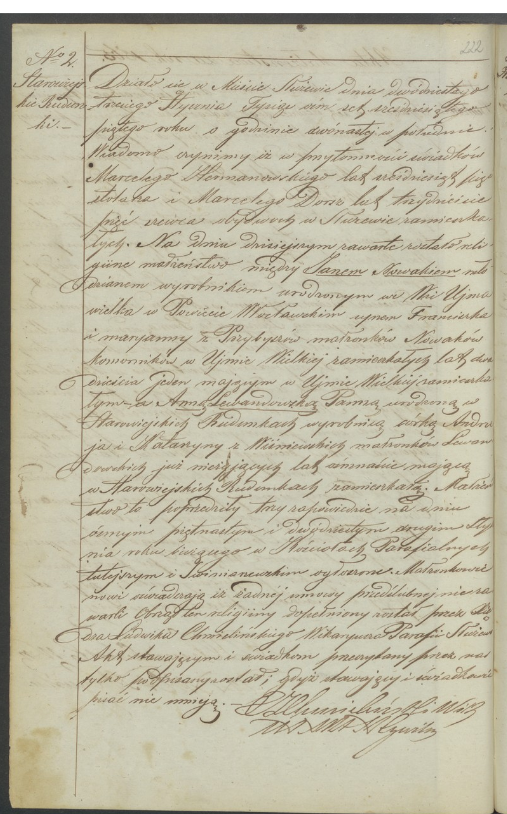 222
No 2.
Starowiejs
kie Rudun
ki. —
Działo się w Mieście dnia dwudziestego
trzeciego Stycznia Tysiąc ośm set sześćdziesiątego
piątego roku o godzinie dwónastej w południe.
Wiadomo czynimy iż w przytomności świadków
Marcelego lat sześćdziesiąt pięć
stolarza i Marcelego lat trzydzieście
pięć szewca obydwóch w zamieszka
łych. Na dniu dzisiejszym zawarte zostało reli
gijne małżeństwo między Janem Nowakiem mło
dzianem wyrobnikiem urodzonym we Wsi Ujma
wielka w Powiecie Włocławskim synem Franciszka
i Maryanny z Przybyszów małżonków Nowaków
komorników w Ujmie Wielkiej zamieszkałych lat dwa
dzieścia jeden mającym w Ujmie Wielkiej zamieszka
łym a Anną Lewandowską Panną urodzoną w
Starowiejskich Rudunkach wyrobnicą córką Andrze
ja i Katarzyny z Wiśniewskich małżonków Lewan
dowskich już nieżyjących lat mającą
w Starowiejskich Rudunkach zamieszkałą. Małżeń
stwo to poprzedziły trzy zapowiedzie na dniu
ósmym piętnastym i dwudziestym drugim Stycz
nia roku bieżącego w Kościołach Parafialnych
tutejszym i ogłoszone. Małżonkowie
nowi oświadczają iż żadnej umowy przedślubnej nieza
warli Obrząd ten religijny dopełniony został przez
Ludwika Chmielińskiego Wikaryusza Parafii
Akt stawającym i świadkom przeczytany przez nas
tylko podpisany został; gdyż stawający i świadkowie
pisać nie umieją. —